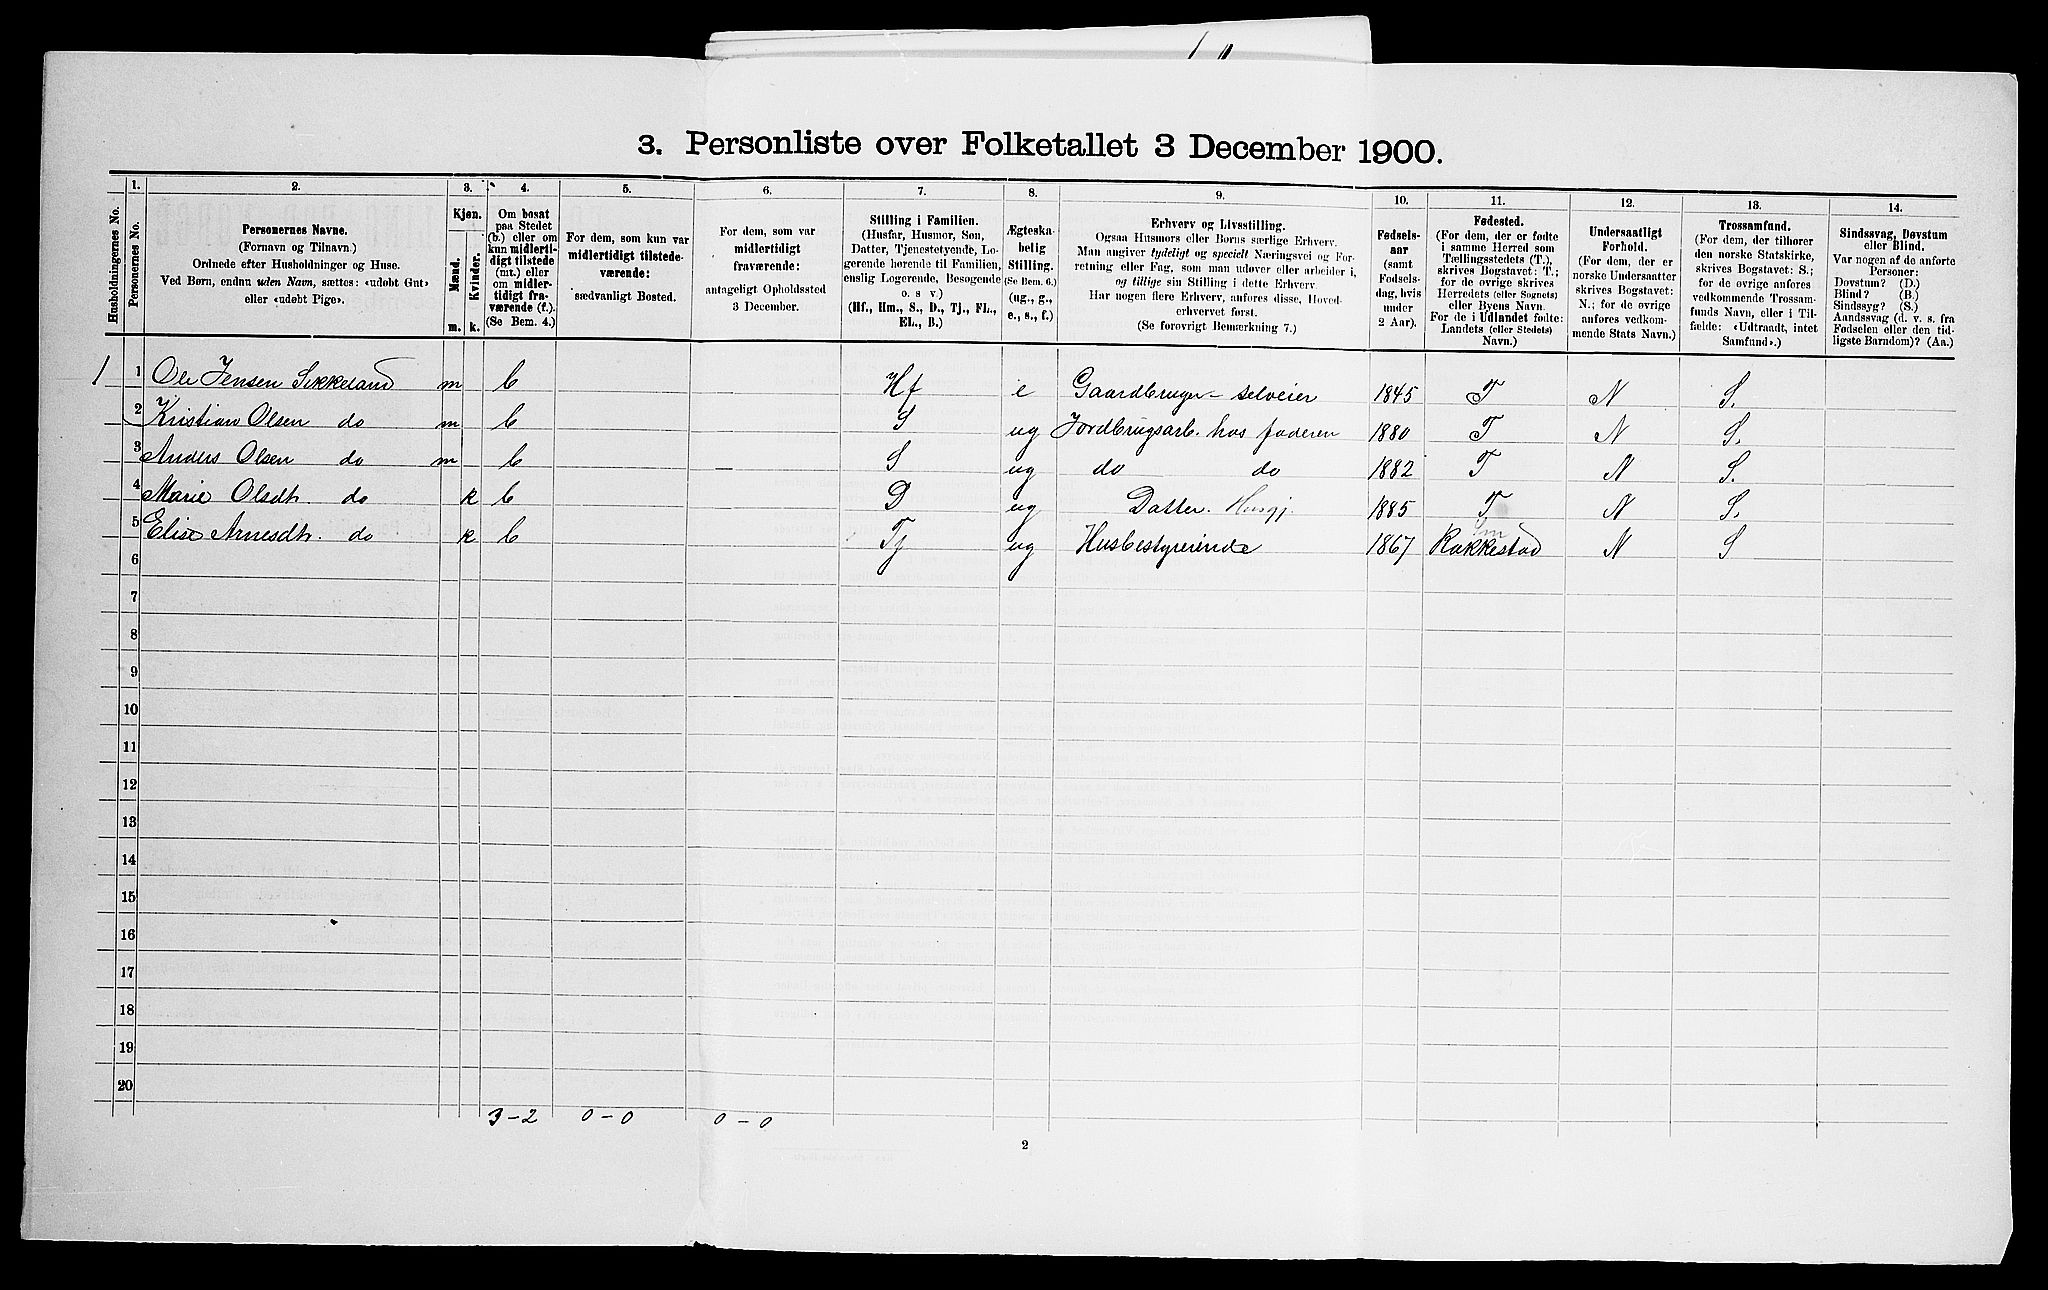 3. Personliste over Folketallet 3 December 1900.
1. 2. 3. 4. 5. 6. 7. 8. 9. 10. 11. 12. 13. 14.
Husholdningernes No.
Personernes No.
Personernes Navne.
(Fornavn og Tilnavn.)
Ordnede efter Husholdninger og Huse.
Ved Børn, endnu uden Navn, sættes: «udøbt Gut»
eller «udøbt Pige».
Kjøn.
Mænd.
Kvinder.
m. k.
Om bosat
paa Stedet
(b.) eller om
kun midlerti-
digt tilstede
(mt.) eller
om midler-
tidigt fra-
værende (f.).
(Se Bem. 4.)
For dem, som kun var
midlertidigt tilstede-
værende:
sædvanligt Bosted.
For dem, som var
midlertidigt
fraværende:
antageligt Opholdssted
3 December.
Stilling i Familien.
(Husfar, Husmor, Søn,
Datter, Tjenestetyende, Lo-
gerende hørende til Familien,
enslig Logerende, Besøgende
o. s. v.)
(Hf., Hm., S., D., Tj., FL.,
EL., B.)
Ægteska-
belig
Stilling.
(Se Bem. 6.)
(ug., g.,
e., s., f.)
Erhverv og Livsstilling.
Ogsaa Husmors eller Børns særlige Erhverv.
Man angiver tydeligt og specielt Næringsvei og For-
retning eller Fag, som man udøver eller arbeider i,
og tillige sin Stilling i dette Erhverv.
Har nogen flere Erhverv, anføres disse, Hoved-
erhvervet først.
(Se forøvrigt Bemærkning 7.)
Fødsels-
aar
(samt
Fødsels-
dag, hvis
under
2 Aar).
Fødested.
(For dem, der er fødte
i samme Herred som
Tællingsstedets (T.),
skrives Bogstavet: T.;
for de øvrige skrives
Herredets (eller Sognets)
eller Byens Navn.
For de i Udlandet fødte:
Landets (eller Stedets)
Navn.)
Undersaatligt
Forhold.
(For dem, der er
norske Undersaatter
skrives Bogstavet:
N.; for de øvrige
anføres vedkom-
mende Stats Navn.)
Trossamfund.
(For dem, der tilhører
den norske Statskirke,
skrives Bogstavet: S.;
for de øvrige anføres
vedkommende Trossam-
funds Navn, eller i Til-
fælde: «Udtraadt, intet
Samfund».)
Sindssvag, Døvstum
eller Blind.
Var nogen af de anførte
Personer:
Døvstum? (D.)
Blind? (B.)
Sindssyg? (S.)
Aandssvag (d. v. s. fra
Fødselen eller den tid-
ligste Barndom)? (Aa.)
1 1 Ole Jensen Sikkeland m b Hf e Gaardbruger - selveier 1845 T N S.
2 Kristian Olsen do m b S ug Jordbrugsarb. hos faderen 1880 T N S.
3 Anders Olsen do m b S ug do do 1882 T N S.
4 Marie Olsdt. do k b D ug Datter. Husgj. 1885 T N S.
5 Elise Arnesdt. do k b Tj ug Husbestyrerinde 1867 Rakkestad N S
6
7
8
9
10
11
12
13
14
15
16
17
18
19
20
3 - 2 0 - 0 0 - 0
2